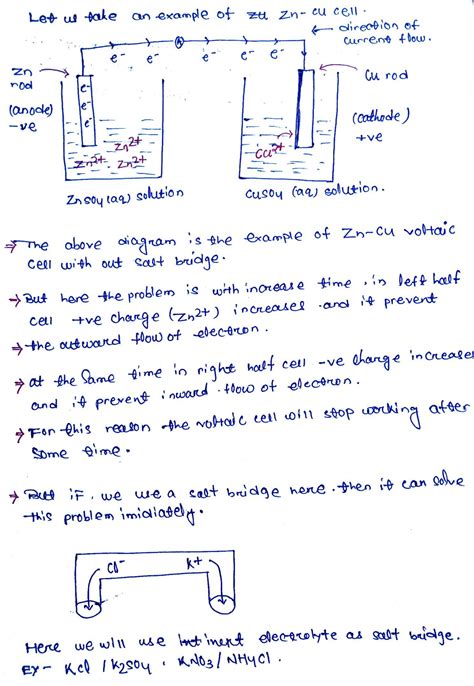 Let us take an example of Zn-Cu cell.
direction of
current flow.
e- e- e- e- e-
A
Zn
rod
(anode)
-ve
e-
e-
e-
Zn2+
Zn2+ Zn2+
Cu rod
(cathode)
+ve
Cu2+
ZnSO4 (aq) solution
CuSO4 (aq) solution.
⇒ The above diagram is the example of Zn-Cu voltaic
cell with out salt bridge.
→ But here the problem is with increase time, in left half
cell +ve charge (Zn2+) increases and it prevent
→ the outward flow of electron.
→ at the same time in right half cell -ve charge increases
and it prevent inward flow of electron.
→ For this reason the voltaic cell will stop working after
some time.
→ But if we use a salt bridge here. then it can solve
this problem imidiately.
Cl-
K+
Here we will use inert electrolyte as salt bridge.
Ex- KCl / K2SO4, KNO3 / NH4Cl.